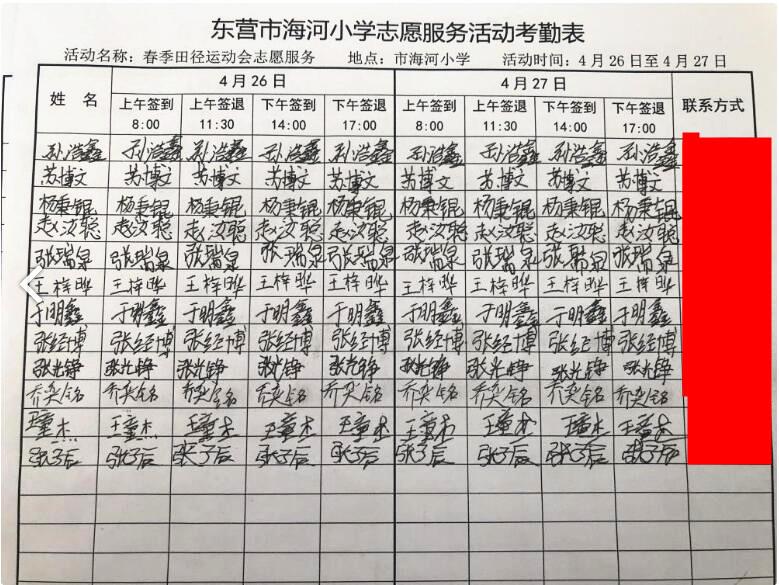 东营市海河小学志愿服务活动考勤表
活动名称：春季田径运动会志愿服务 地点：市海河小学 活动时间：4月26日至4月27日
姓 名 4月26日 4月27日 联系方式
上午签到 上午签退 下午签到 下午签退 上午签到 上午签退 下午签到 下午签退
8:00 11:30 14:00 17:00 8:00 11:30 14:00 17:00
孙浩鑫 孙浩鑫 孙浩鑫 孙浩鑫 孙浩鑫 孙浩鑫 孙浩鑫 孙浩鑫 孙浩鑫
苏博文 苏博文 苏博文 苏博文 苏博文 苏博文 苏博文 苏博文 苏博文
杨秉锟 杨秉锟 杨秉锟 杨秉锟 杨秉锟 杨秉锟 杨秉锟 杨秉锟 杨秉锟
赵汝聪 赵汝聪 赵汝聪 赵汝聪 赵汝聪 赵汝聪 赵汝聪 赵汝聪 赵汝聪
张瑞泉 张瑞泉 张瑞泉 张瑞泉 张瑞泉 张瑞泉 张瑞泉 张瑞泉 张瑞泉
王梓晔 王梓晔 王梓晔 王梓晔 王梓晔 王梓晔 王梓晔 王梓晔 王梓晔
于明鑫 于明鑫 于明鑫 于明鑫 于明鑫 于明鑫 于明鑫 于明鑫 于明鑫
张经博 张经博 张经博 张经博 张经博 张经博 张经博 张经博 张经博
张光铮 张光铮 张光铮 张光铮 张光铮 张光铮 张光铮 张光铮 张光铮
乔奕铭 乔奕铭 乔奕铭 乔奕铭 乔奕铭 乔奕铭 乔奕铭 乔奕铭 乔奕铭
王童杰 王童杰 王童杰 王童杰 王童杰 王童杰 王童杰 王童杰 王童杰
张子辰 张子辰 张子辰 张子辰 张子辰 张子辰 张子辰 张子辰 张子辰